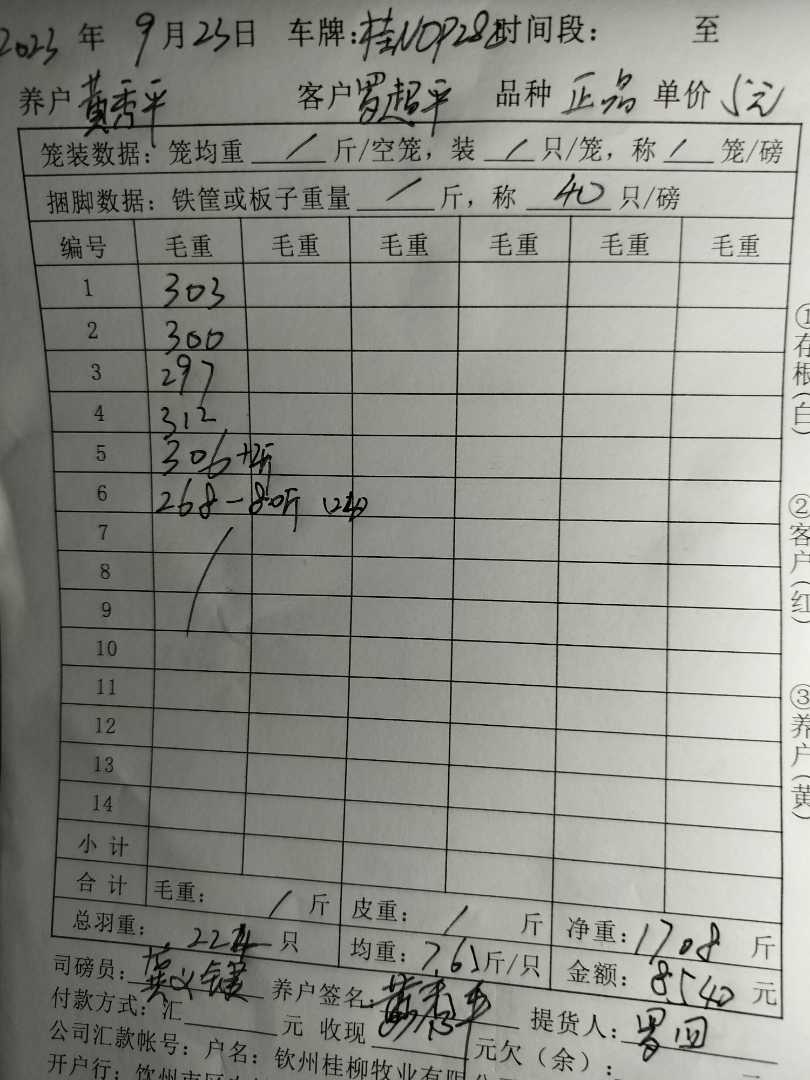 2023 年 9 月 23 日 车牌: 桂N0P28 时间段: 至
养户 黄秀平 客户 罗超平 品种 正品 单价 5元
笼装数据: 笼均重 / 斤/空笼, 装 / 只/笼, 称 / 笼/磅
捆脚数据: 铁筐或板子重量 / 斤, 称 40 只/磅
编号 毛重 毛重 毛重 毛重 毛重 毛重
1 303
2 300
3 297
4 312
5 306
6 268-80斤
7
8
9
10
11
12
13
14
小计
合计 毛重: / 斤 皮重: / 斤 净重: 1708 斤
总羽重: 224 只 均重: 7.65 斤/只 金额: 8540 元
司磅员: 养户签名: 黄秀平 提货人:
付款方式: 汇 元 收现 元欠(余):
公司汇款帐号: 户名: 钦州桂柳牧业有限
开户行: 钦州市区
①存根(白)
②客户(红)
③养户(黄)